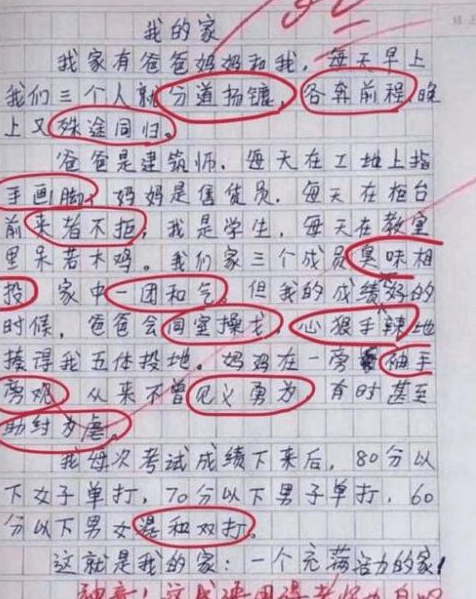 我的家
我家有爸爸妈妈和我，每天早上
我们三个人就分道扬镳，各奔前程，晚
上又殊途同归。
爸爸是建筑师，每天在工地上指
手画脚，妈妈是售货员，每天在柜台
前来者不拒；我是学生，每天在教室
里呆若木鸡。我们家三个成员臭味相
投，家中一团和气。但我的成绩不好的
时候，爸爸会同室操戈，心狠手辣地
揍得我五体投地。妈妈在一旁袖手
旁观，从来不曾见义勇为，有时甚至
助纣为虐。
我每次考试成绩下来后，80分以
下女子单打，70分以下男子单打，60
分以下男女混和双打。
这就是我的家：一个充满活力的家！
神童！这成语用得